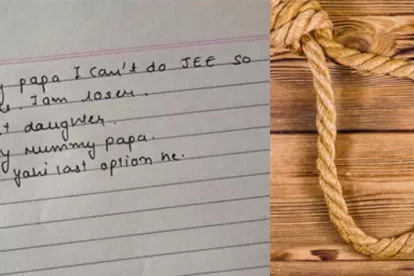 papa I can't do JEE so
I am loser.
daughter.
mummy papa.
yahi last option he.